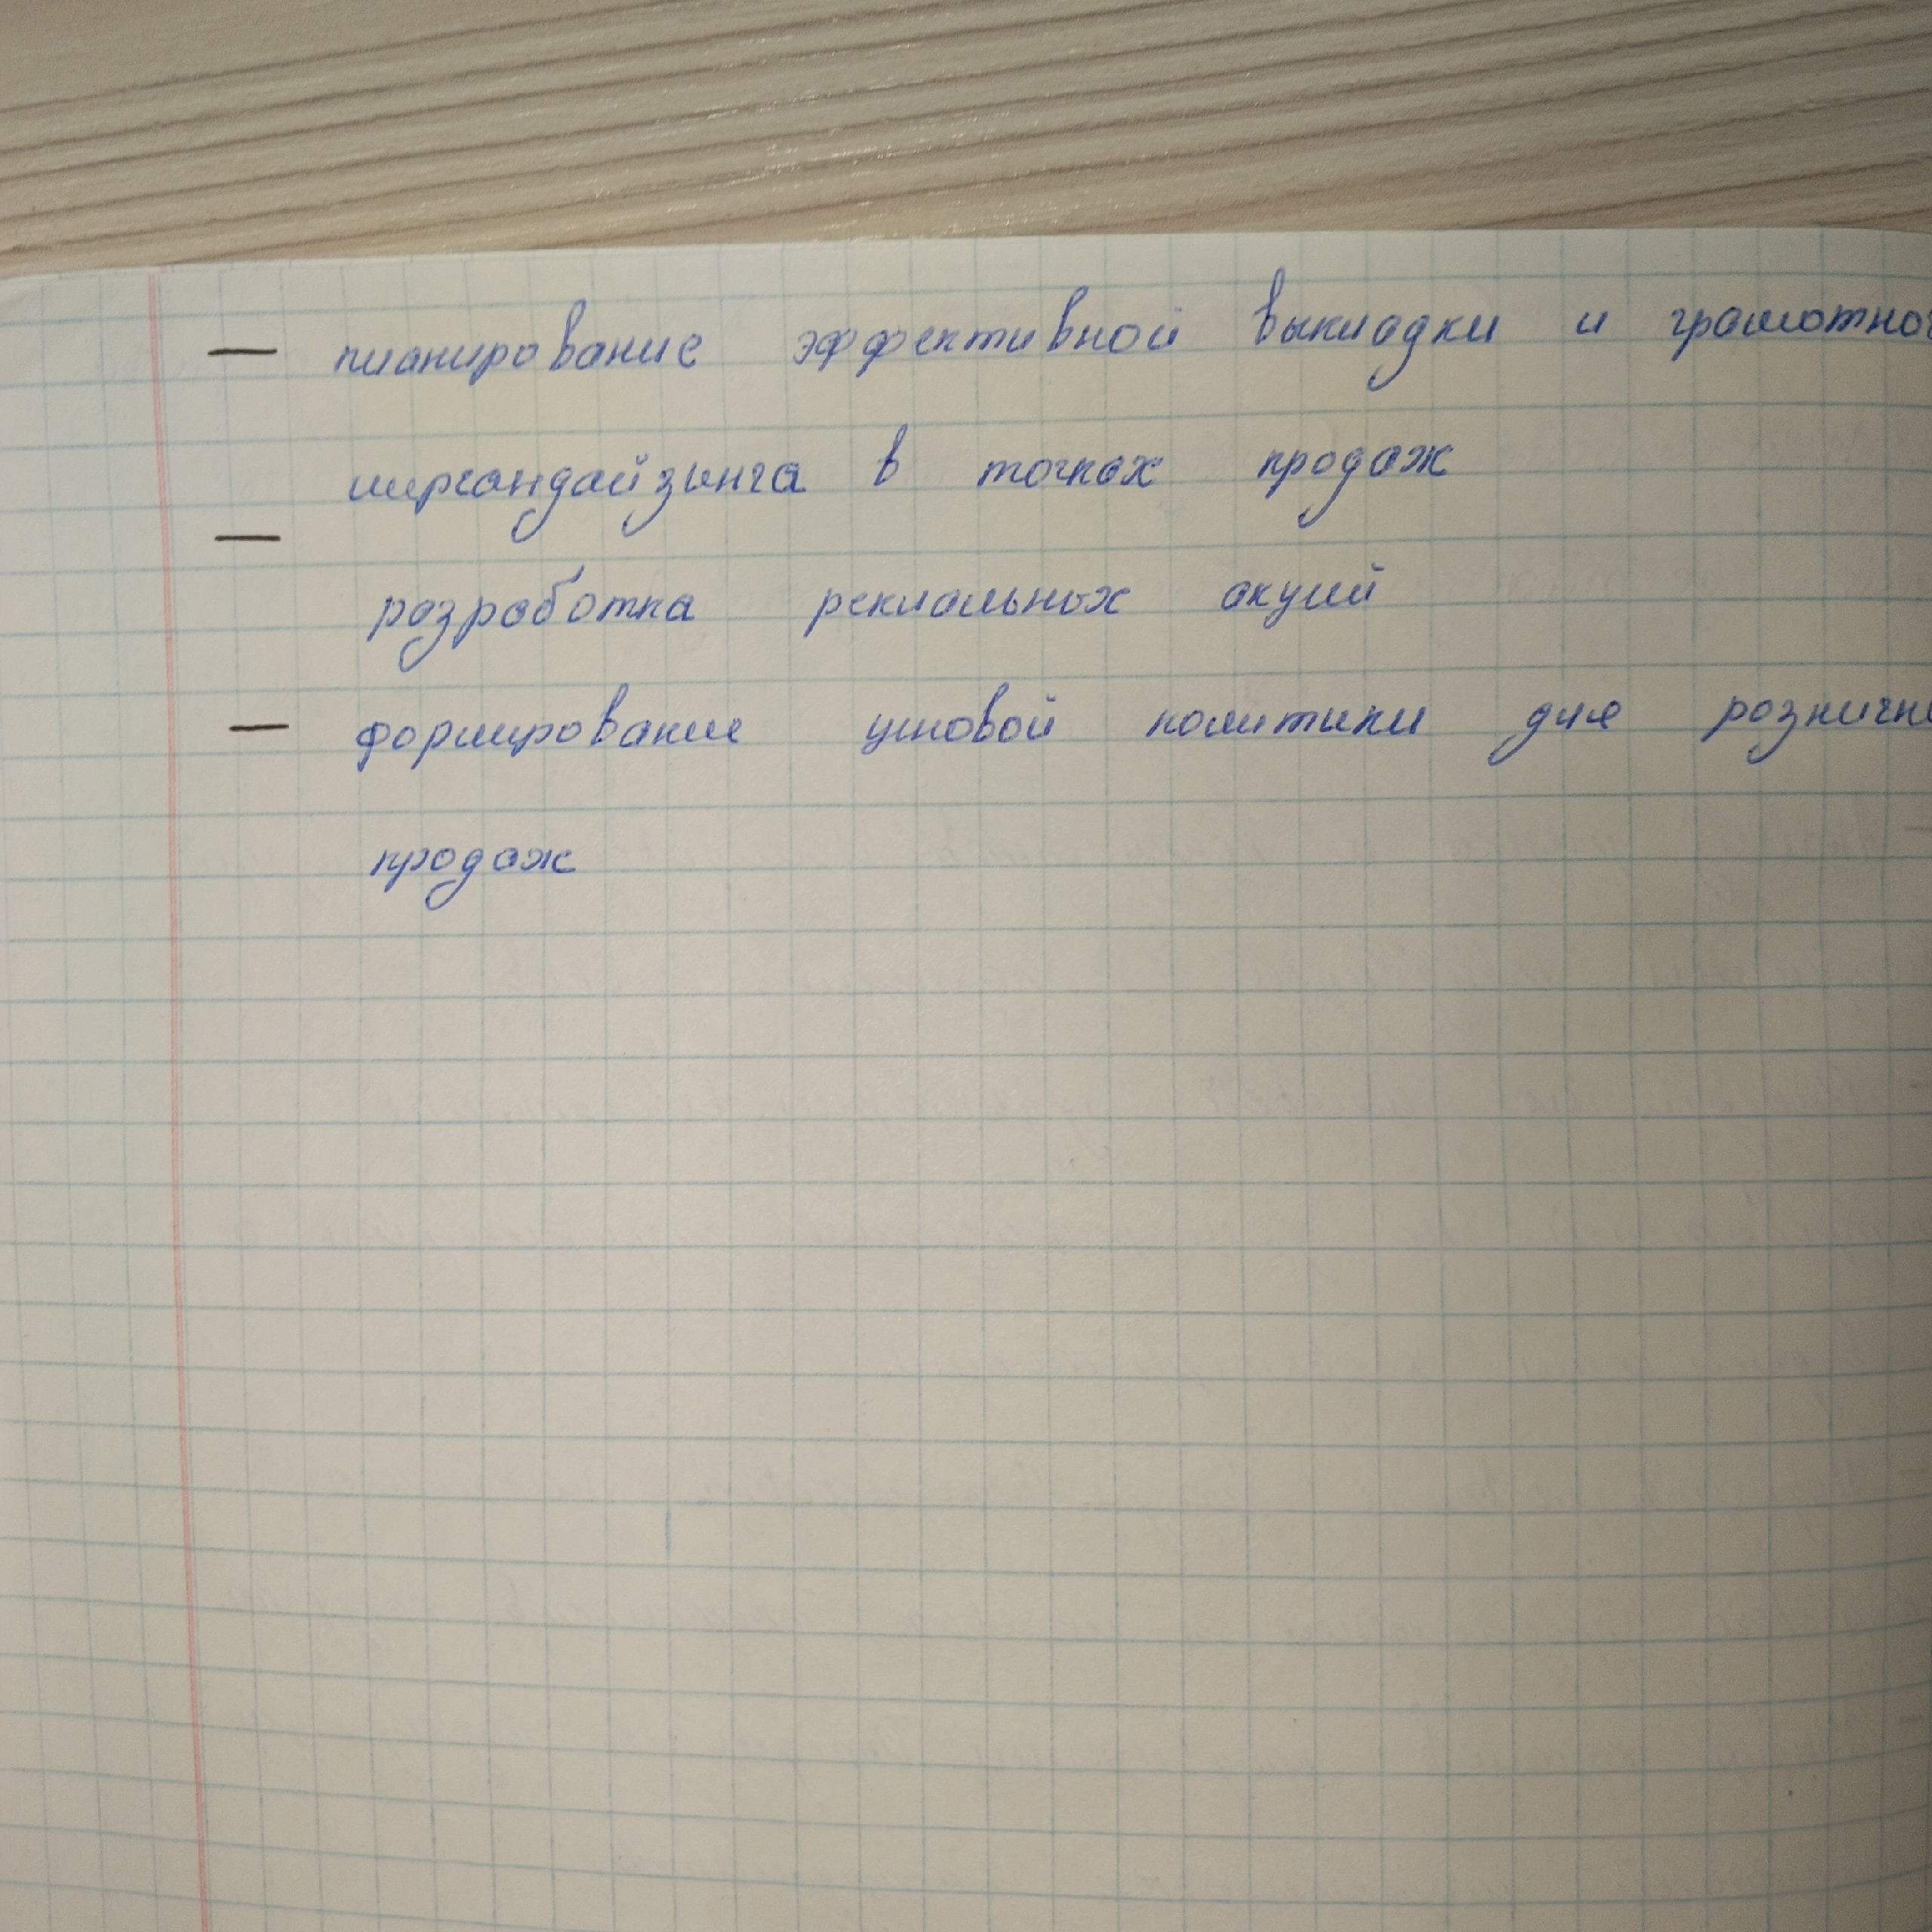 — планирование эффективной выкладки и грамотног
мерчандайзинга в точках продаж
— разработка рекламных акций
— формирование ценовой политики для розничн
продаж